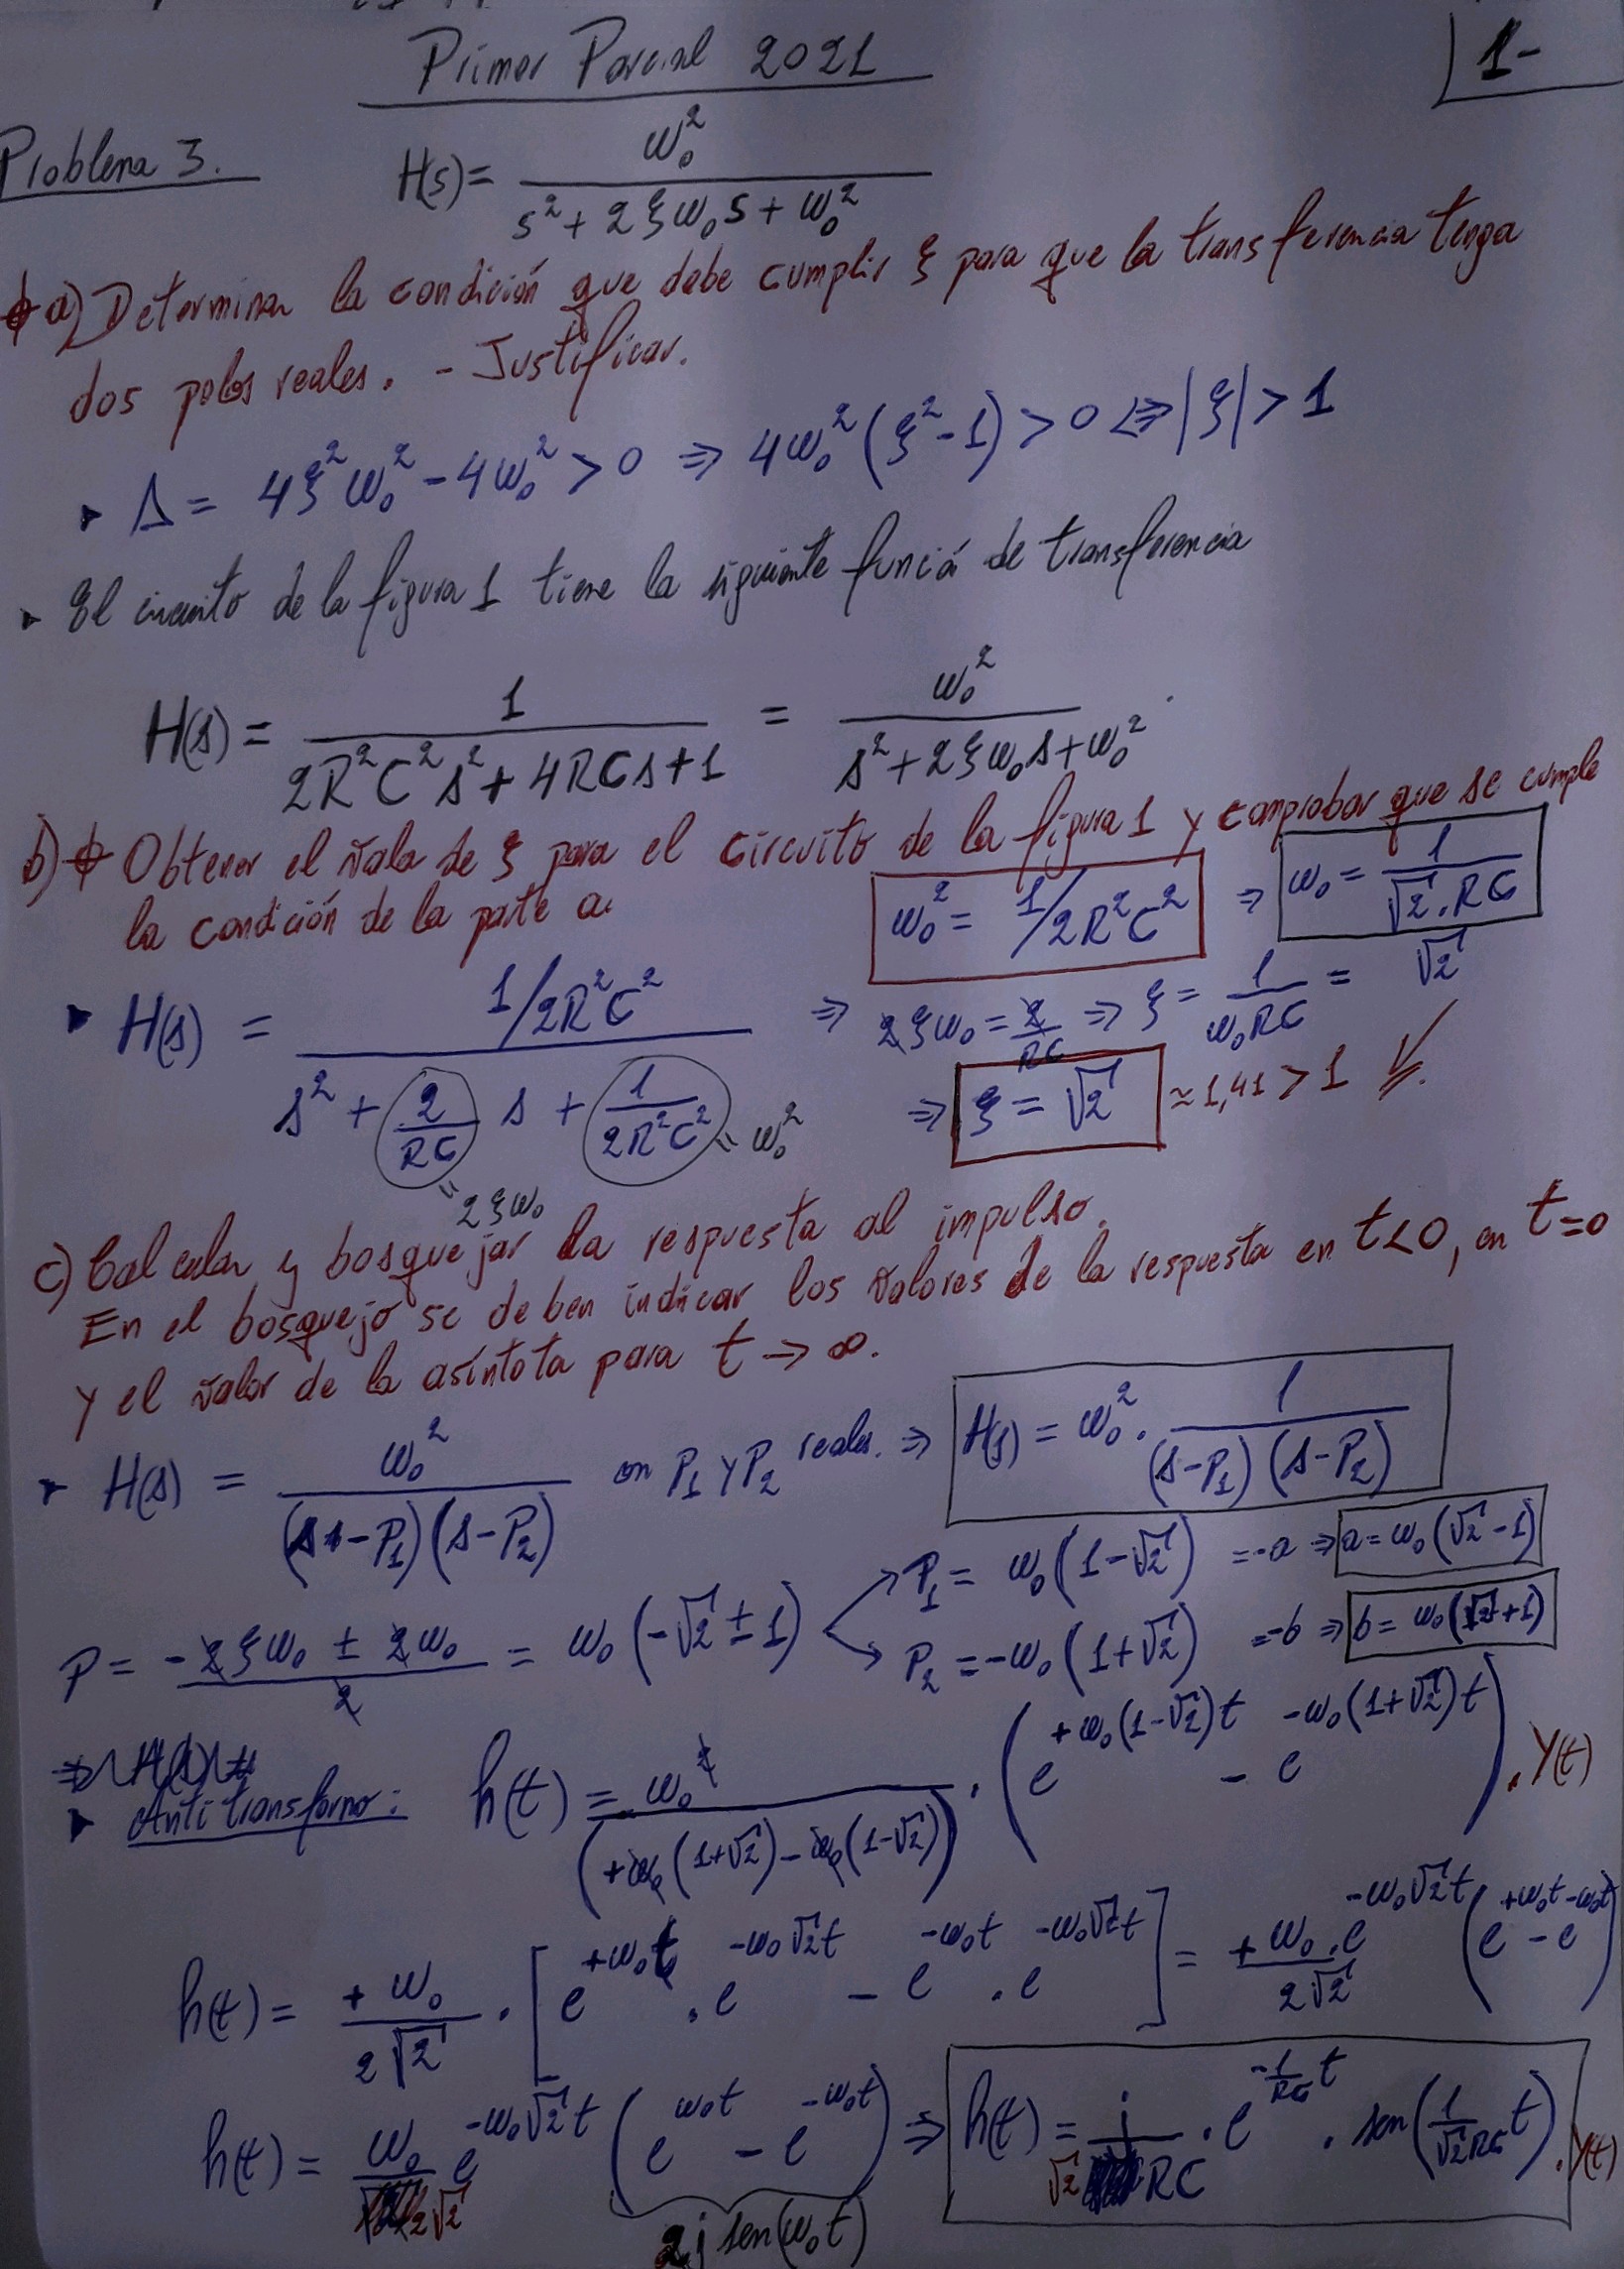 Primer Parcial 2021
1-
Problema 3. H(s) = ω₀² / (s² + 2ξω₀s + ω₀²)
a) Determinar la condición que debe cumplir ξ para que la transferencia tenga
dos polos reales. - Justificar.
Δ = 4ξ²ω₀² - 4ω₀² > 0 ⇒ 4ω₀²(ξ² - 1) > 0 ⇔ |ξ| > 1
El circuito de la figura 1 tiene la siguiente función de transferencia
H(s) = 1 / (2R²C²s² + 4RCs + 1) = ω₀² / (s² + 2ξω₀s + ω₀²)
b) Obtener el valor de ξ para el circuito de la figura 1 y comprobar que se cumple
la condición de la parte a.
ω₀² = 1/2R²C² ⇒ ω₀ = 1 / (√2 . RC)
H(s) = (1/2R²C²) / (s² + (2/RC) s + 1/(2R²C²)) ⇒ 2ξω₀ = 2/RC ⇒ ξ = 1/(ω₀RC) = √2
" 2ξω₀ " ω₀²
⇒ ξ = √2 ≈ 1,41 > 1
c) Calcular y bosquejar la respuesta al impulso.
En el bosquejo se deben indicar los valores de la respuesta en t<0, en t=0
y el valor de la asíntota para t → ∞.
H(s) = ω₀² / ((s - P₁)(s - P₂)) con P₁ y P₂ reales. ⇒ H(s) = ω₀² . 1 / ((s - P₁)(s - P₂))
P = (-2ξω₀ ± 2ω₀) / 2 = ω₀(-√2 ± 1)
P₁ = ω₀(1 - √2) = -a ⇒ a = ω₀(√2 - 1)
P₂ = -ω₀(1 + √2) = -b ⇒ b = ω₀(√2 + 1)
Anti transformo: h(t) = ω₀ / (+ω₀(1+√2) - ω₀(1-√2)) . (e^{+ω₀(1-√2)t} - e^{-ω₀(1+√2)t}) . Y(t)
h(t) = +ω₀ / (2√2) . [e^{+ω₀t} . e^{-ω₀√2t} - e^{-ω₀t} . e^{-ω₀√2t}] = +ω₀ . e^{-ω₀√2t} / (2√2) (e^{+ω₀t} - e^{-ω₀t})
h(t) = ω₀ / (2√2) e^{-ω₀√2t} (e^{ω₀t} - e^{-ω₀t}) ⇒ h(t) = j / (√2 RC) . e^{-(1/RC)t} . sen((1/√2RC) t) . Y(t)
2j sen(ω₀t)